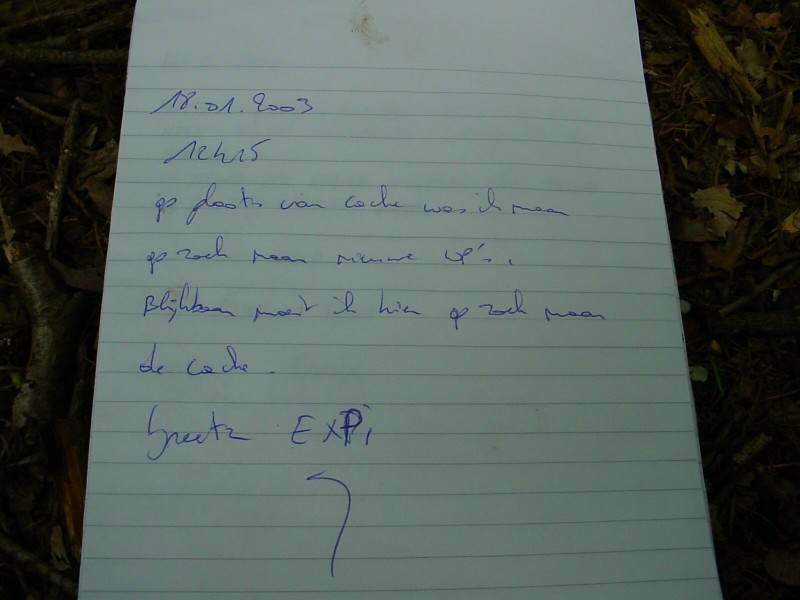 18.01.2003
12h15
op plaats van cache was ik naar
op zoek naar nieuwe WP's.
Blijkbaar moet ik hier op zoek naar
de cache.
Greetz EXPi